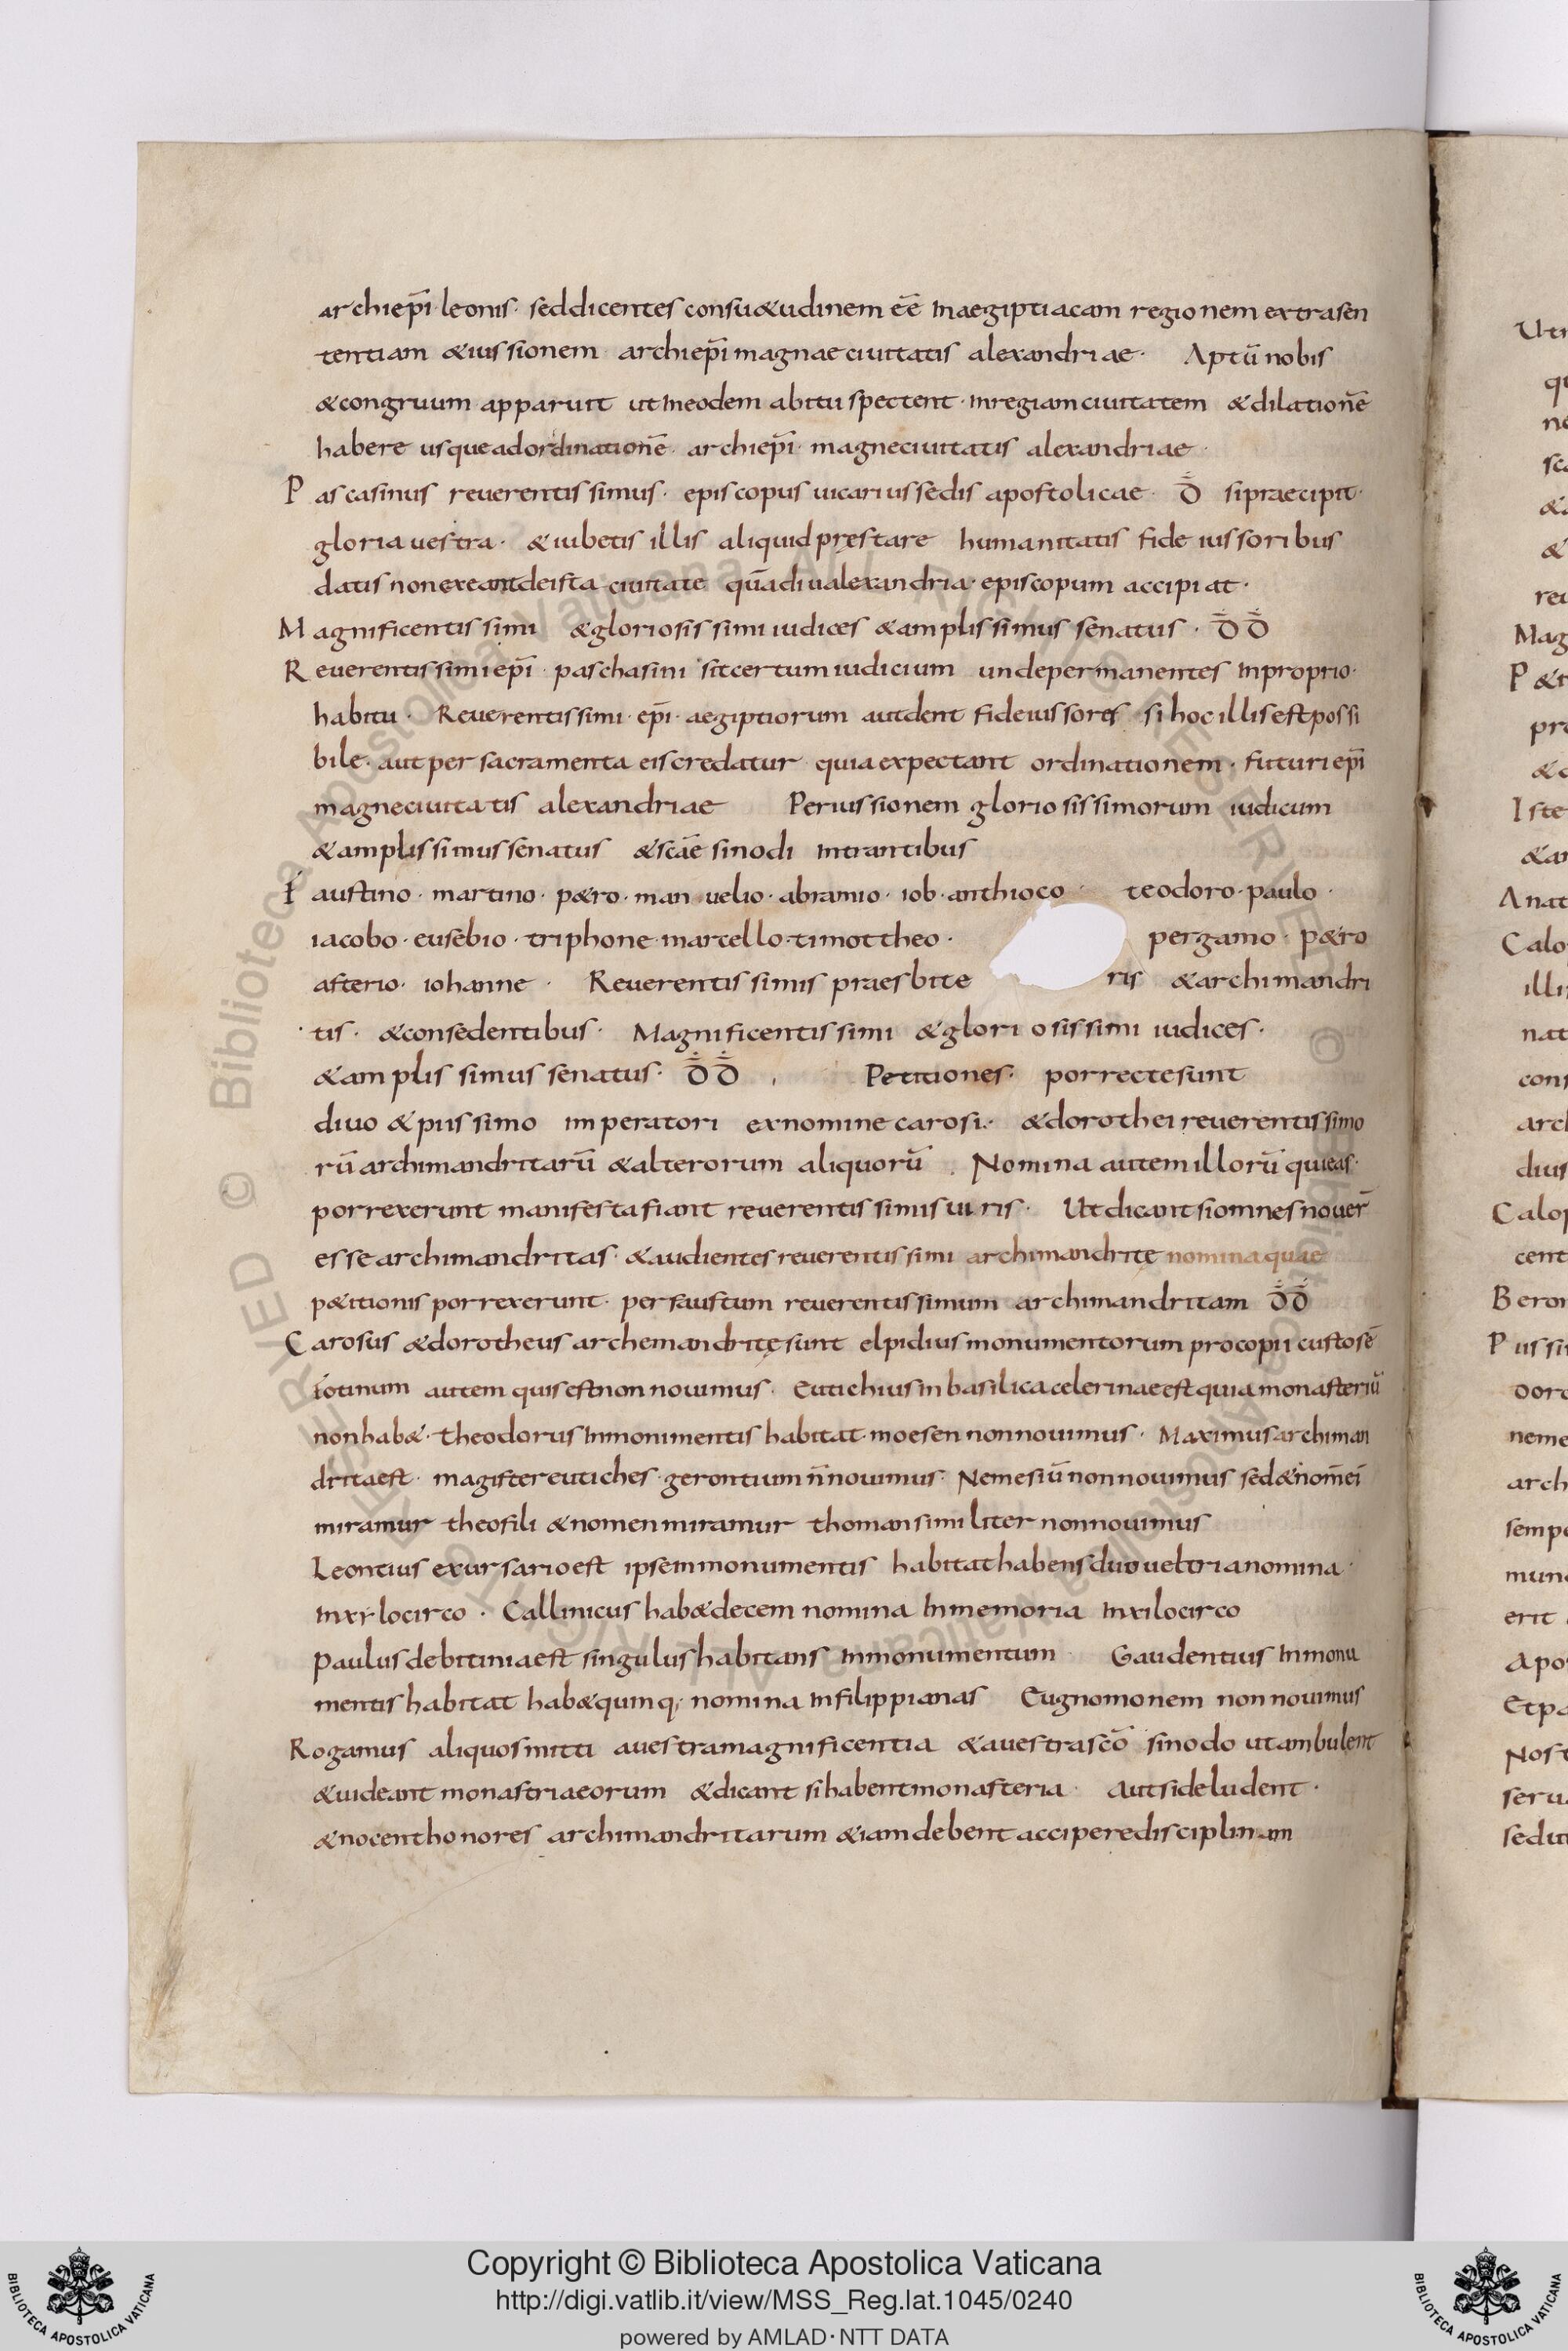 archiep̄i· leonis· sed dicentes consu&udinem ēē in aegiptiacam regionem extra sen
tentiam &iussionem archiep̄i magnae ciuitatis alexandriae· Aptū nobis
&congruum apparuit ut in eodem abitu spectent· in regiam ciuitatem &dilationē
habere usque ad ordinationē· archiep̄i· magne ciuitatis alexandriae·
Pascasinus reuerentissimus· episcopus uicarius sedis apostolicae· D̄ si praecipit·
gloria uestra· &iubetis illis aliquid pręstare humanitatis fideiussoribus
datis non exeant de ista ciuitate quādiu alexandria· episcopum accipiat·
Magnificentissimi &gloriosissimi iudices &amplissimus senatus· D̄D̄
Reuerentissimi ep̄i· paschasini sit certum iudicium unde permanentes in proprio·
habitu· Reuerentissimi· ep̄i· aegiptiorum aut dent fideiussores si hoc illis est possi
bile· aut per sacramenta eis credatur quia expectant ordinationem· futuri ep̄i
magne ciuitatis alexandriae Per iussionem gloriosissimorum iudicum
&amplissimus senatus &scāe sinodi intrantibus
Faustino· martino· p&ro· manuelio· abramio· iob· anthioco· teodoro· paulo·
iacobo· eusebio· triphone· marcello· timottheo· pergamo· p&ro
asterio· iohanne· Reuerentissimis praesbite ris &archimandri
tis· &consedentibus· Magnificentissimi &gloriosissimi iudices·
&amplissimus senatus· D̄D̄ Petitiones· porrecte sunt
diuo &piissimo imperatori ex nomine carosi· &dorothei reuerentissimo
rū archimandritarū &alterorum aliquorū· Nomina autem illorū qui eas·
porrexerunt manifesta fiant reuerentissimis uiris· Ut dicant si omnes nouer̄
esse archimandritas· &audientes reuerentissimi archimandritę nomina quae
p&itionis porrexerunt· per faustum reuerentissimum archimandritam D̄D̄
Carosus &dorotheus archemandritę sunt elpidius monumentorum procopii custos ē
fotinum autem quis est non nouimus· Eutichius in basilica celerinae est quia monasteriū
non hab&· theodorus in monimentis habitat· moesen non nouimus· Maximus archiman
drita est· magister eutiches· gerontium n̄ nouimus· Nemesiū non nouimus sed &nom̄ eī
miramur theofili &nomen miramur thoman similiter non nouimus
Leontius ex ursario est ipse in monumentis habitat habens duo ueltria nomina·
in xilocirco· Callinicus hab& decem nomina In memoria in xilocirco
Paulus de bitinia est singulus habitans in monumentum Gaudentius in monu
mentis habitat hab& quinq; nomina in filippianas Eugnomonem non nouimus
Rogamus aliquos mitti a uestra magnificentia &a uestra scō sinodo ut ambulent
&uideant monastria eorum &dicant si habent monasteria· Aut si deludent·
&nocent honores archimandritarum &iam debent accipere disciplinam
Copyright © Biblioteca Apostolica Vaticana
http://digi.vatlib.it/view/MSS_Reg.lat.1045/0240
powered by AMLAD·NTT DATA